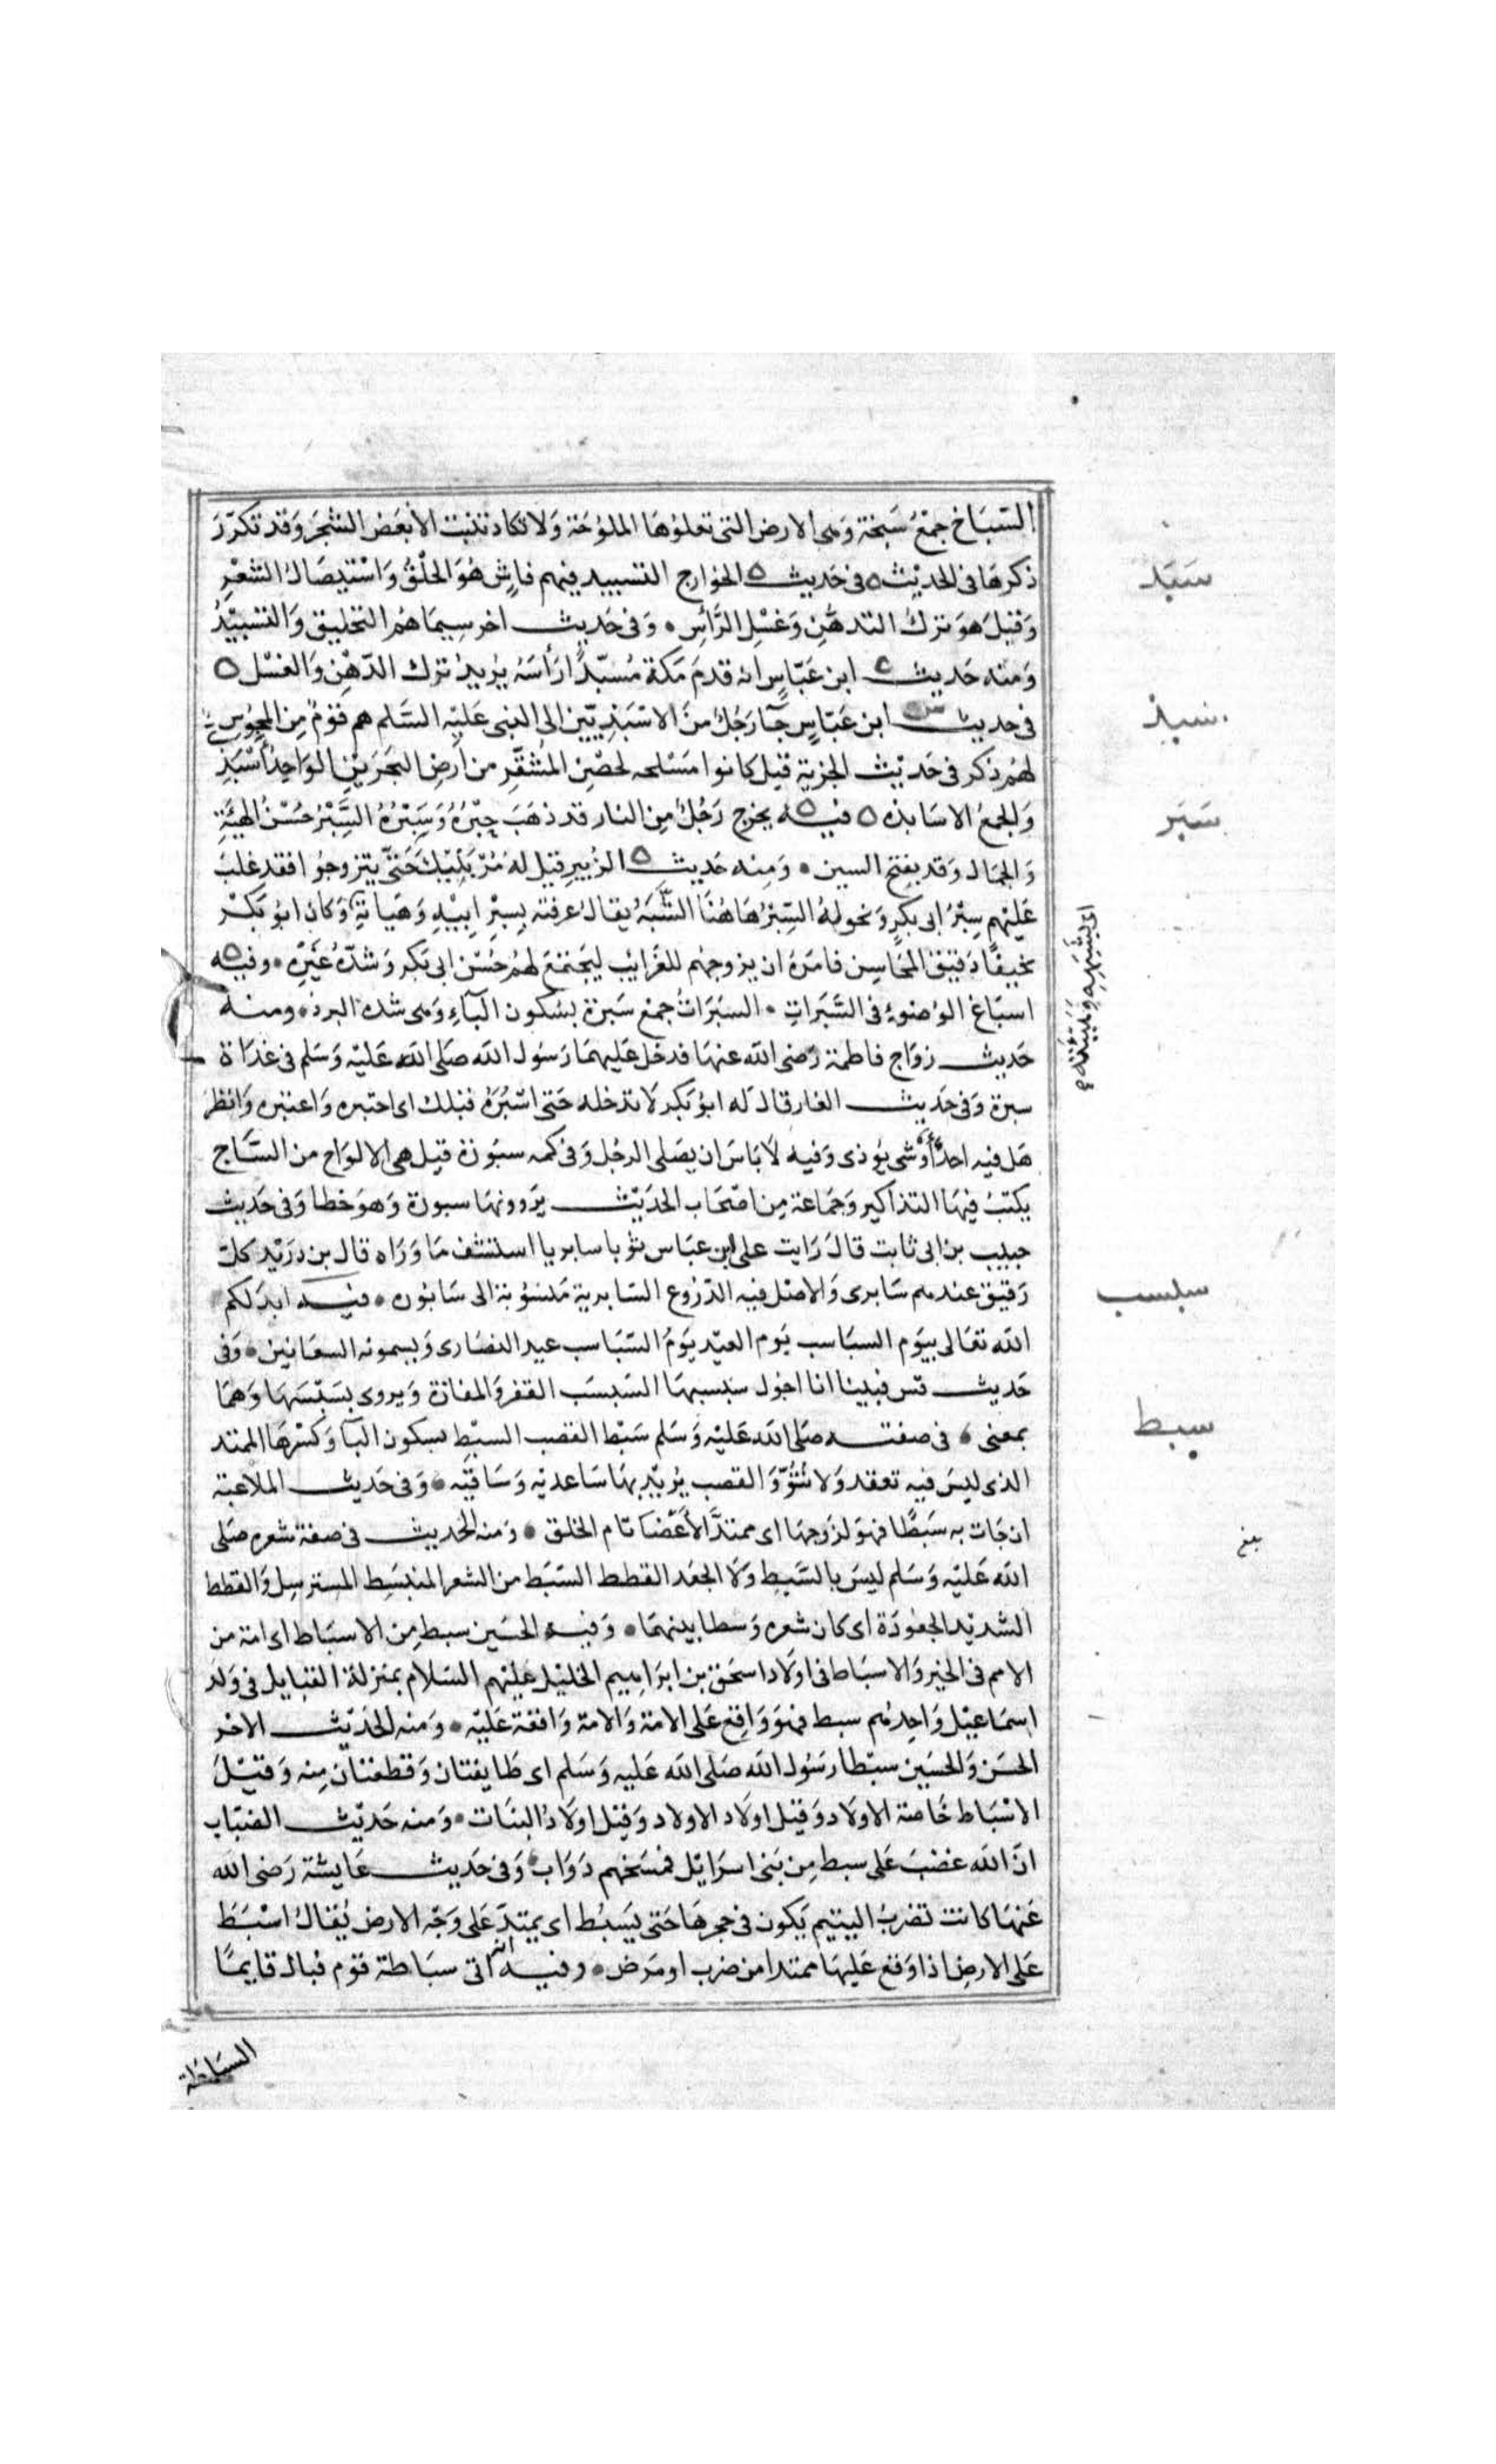 السّبَاخ جمْعُ سَبخَة وَهى الارض التى تعلوُهَا الملوُحَة وَلا تكاد تنبت الا بَعَض الشجَر وَقد تكرّرَ
ذكرهَا فى الحدِيْث ه فى حَديث ه الخوارج التسبيد فيهم فاشٍ هُوَ الحلْقُ وَاسْتيصَالُ الشعْرِ
وَقيْلَ هوَ ترك التدهُّنِ وَغسْلِ الرَّأسِ ٠ وَفى حَديث اخر سِيمَاهُم التحليق وَالتسْبيْدُ
وَمنه حَديث ه ابن عَبّاسٍ انه قدمَ مَكة مُسبّدًا رَأسَهُ يُريدُ ترك الدّهْنِ وَالغسْل ه
فى حديث ابن عَبّاسٍ جَآ رَجُلٌ منَ الاسْبَذِيّين الى النبى عَليْهِ السَّلم هم قوْمٌ مِنَ المجوُسِ
لهُم ذكر فى حَديْث الجزية قيل كانوا مَسْلحه لحصْنِ المُشَقَّرِ من اَرضِ البَحَرَيْنِ الوَاحِدُ اَسْبَذِ
وَالجمْعُ الاسَابذه ه فيـه يخرج رَجُلٌ مِن النار قد ذهَبَ حِبْرُهُ وَسِبْرُهُ السَّبْرُ حُسْنُ الهيئَةِ
وَالجمَال وَقد يفتح السين ٠ وَمِنه حَديث ه الزُبيرِ قيْل لهُ مُرْ بَنِيْكَ حَتّى يتزوجوُا فقد غلبَ
عَليْهم سِبْرُ ابى بكرٍ وَنحولهُ السِّبْرُ هَا هُنَا الشَّبَهُ يقالُ عرفته بِسِبْرِ ابِيْهِ وَهَيأتِه وَكان ابوُ بَكْرٍ
نحِيفًا دَقيْقَ المحَاسِن فامَرَهُ ان يزوجهُم للغَرَايْبِ ليَجتمعَ لهُم حُسْن ابى بَكر وَشدّةُ غيْرِهِ ٠ وفيه
اسبَاغ الوُضوُءِ فى السَّبَراتِ ٠ السبَرَاتُ جمْع سَبرة بسُكون البآءِ وَهى شدة البرد ٠ ومنه
حَديث زوَاج فاطمَة رَضى الله عنهَا فدخل عَليهمَا رَسُول الله صَلى الله عَليْه وَسَلم فى غدَاة
سبرة وَفى حَديث الغار قال له ابوُ بَكر لَا تدخله حَتى اسْبُرَهُ قبلك اى اختبره وَاعتبره وَانظرُ
هَل فيه احدٌ أوْ شى يؤذى وَفيه لَا بَاسَ ان يصَلى الرجُل وَفى كمه سبوُرَة قيل هى الالوَاح من السَّاج
يكتبُ فيهَا التذاكير وَجَمَاعة مِن اصْحَاب الحدَيْث يَروونهَا سبورة وَهوَ خطا وَفى حَديث
حبيب بن ابى ثابت قالَ رَايت على ابن عبَاس ثوْبا سابريا استشف مَا وَرَاه قال بن دَرَيْد كلّ
رَقيْق عندهم سَابرى وَالاصْل فيه الدّرُوع السَّابرية مَنسُوُبَة الى سَابُور ٠ فيـه ابدَلكم
الله تعَالى بيوَم السبَاسب يَوم العيْد يَومُ السّبَاسب عيد النصَارى وَيسمونه السعَانين ٠ وَفى
حَديث قس فبينا انا اجوُل سبسبهَا السَبسَب القفر وَالمفازَة وَيروى بسَبْسَهَا وَهمَا
بمعنى ٠ فى صفتـه صَلى الله عَليْه وَسَلم سَبْط القصَب السبْط بسكون البآ وَكسْرهَا الممتد
الذى ليسَ فيه تعقد وَلا نُتُوّ وَالقصب يُريْد بهَا سَاعديْه وَسَاقيْه ٠ وَفى حَديث الملاعنة
ان جَات به سَبَطًا فهوَ لزَوجهَا اى ممتدَّ الأَعْضَا تام الخلق ٠ وَمنه الحَديث فى صفة شعره صَلى
الله عَليْه وَسَلم ليسَ بالسَّبطِ وَلَا الجَعَد القطط السّبَط من الشعر المنبَسِط المسترسِل وَالقطط
الشديْد الجعوُدَة اى كان شعره وَسطا بينهمَا ٠ وَفيـه الحسَين سبط مِن الاسبَاط اى امة من
الامم فى الخير وَالاسبَاط فى اولَاد اسحَق بن ابرَاهيم الخليْل عليْهم السَلام بمَنزلة القبَايل فى وَلد
اسمَاعيْل وَاحِدهُم سبط فهوَ وَاقِع عَلى الامة وَالامة وَاقعة عَليْه ٠ وَمنه الحَديْث الاخر
الحَسَن وَالحسَين سبْطا رَسُول الله صَلى الله عَليه وَسَلم اى طَايفتان وَقطعتان مِنه وَقيْلَ
الاسْبَاط خَاصة الاولَاد وَقيْل اولَاد الاولاد وَقيْل اولَادُ البنَات ٠ وَمنه حَديْث الضبَاب
انّ الله غضبَ عَلى سبط مِن بَنى اسرَايْل فمسَخهم دَوَاب ٠ وَفى حَديث عَايشَة رَضى الله
عَنهَا كانت تضربُ اليتيم يَكون فى حجرهَا حَتى يَسبُط اى يمتدَّ عَلى وَجْه الارض يُقالُ اسْبَطَ
عَلى الارضِ اذا وَقع عَليهَا ممتدا من ضرب او مَرَض ٠ وفيـه انه اتى سبَاطة قوم فبال قايمًا
السبَاطة
سَبَد
سبذ
سَبَر
اى بشَبَهِهِ وَهَيْئَتِهِ
سبسب
سبط
بلغ